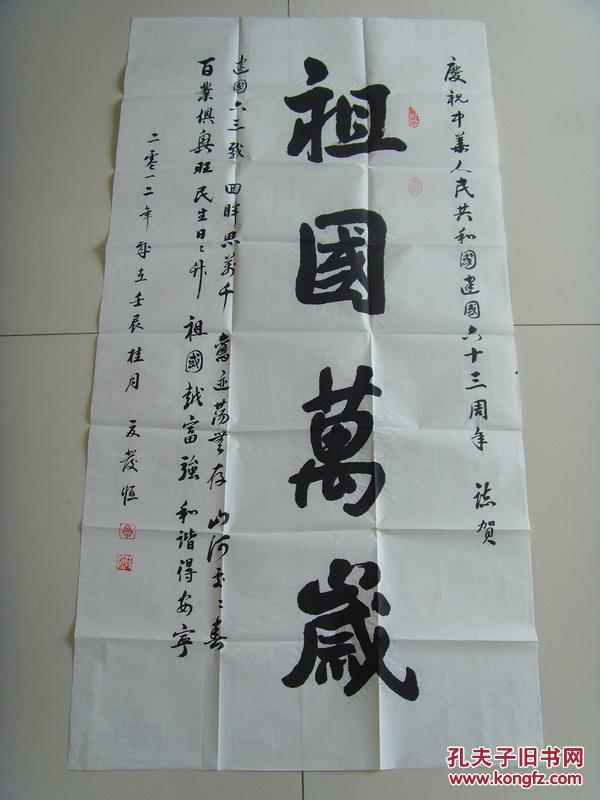 慶祝中華人民共和國建國六十三周年 誌賀
祖國萬歲
建國六三載 回眸思萬千 舊迹蕩無存 山河處〻春
百業俱興旺 民生日〻升 祖國越富強 和谐得安寧
二零一二年歲在壬辰桂月
孔夫子旧书网
www.kongfz.com